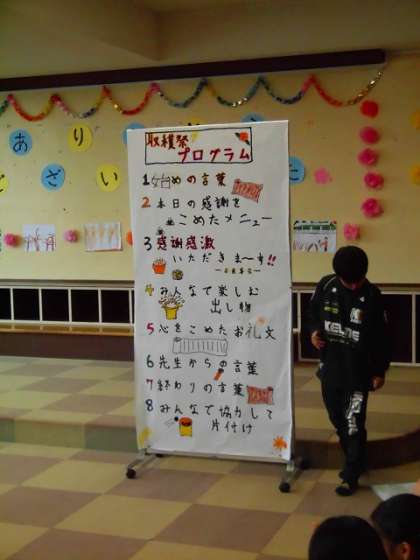 あり
ざい
収穫祭
プログラム
1 始めの言葉
2 本日の感謝を
こめたメニュー
3 感謝感激
いただきま〜す!!
4 みんなで楽しむ
出し物
5 心をこめたお礼文
6 先生からの言葉
7 終わりの言葉
8 みんなで協力して
片付け